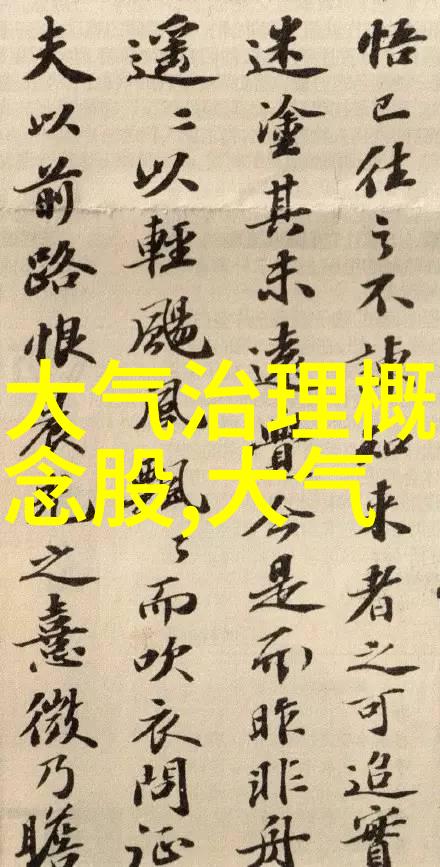 悟已往之不諫知來者之可追實
迷塗其未遠覺今是而昨非舟
遥〻以輕颺風飄〻而吹衣問征
夫以前路恨晨光之熹微乃瞻
大气治理概
念股,大气